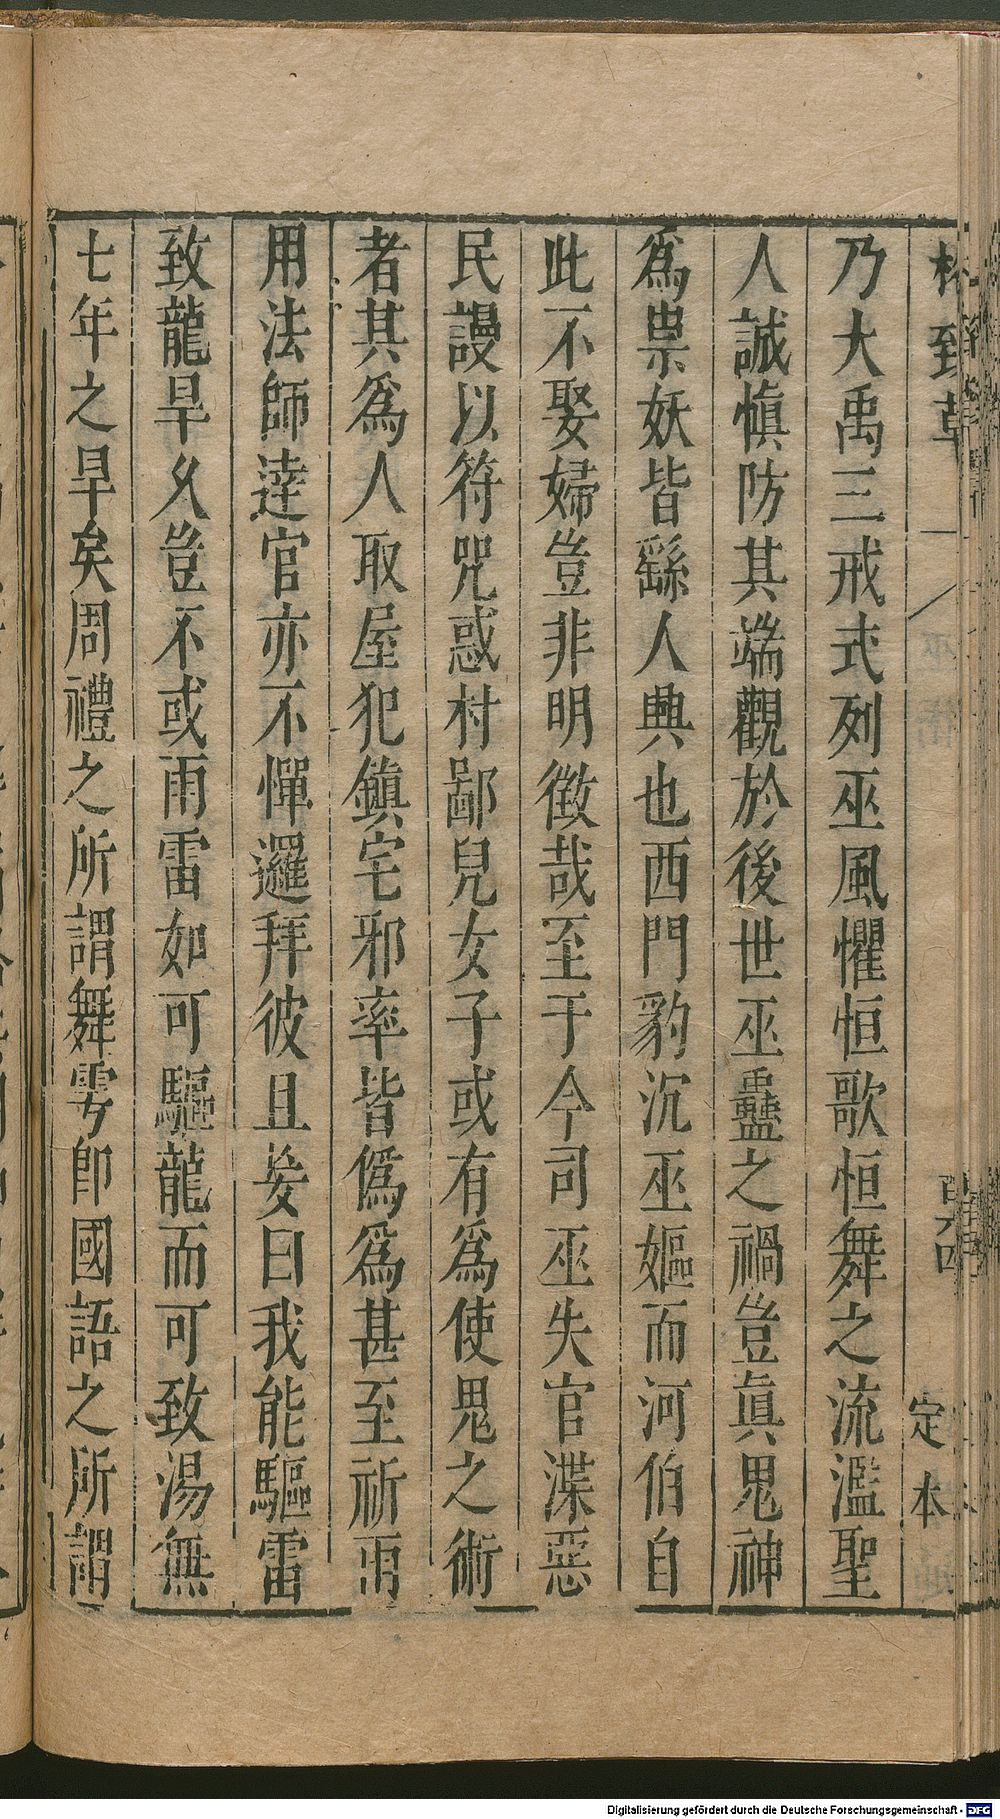 格致草
定本
乃大禹三戒式列巫風懼恒歌恒舞之流濫聖
人誠慎防其端觀於後世巫蠱之禍豈眞鬼神
爲祟妖皆繇人興也西門豹沉巫嫗而河伯自
此不娶婦豈非明徵哉至于今司巫失官渫惡
民謾以符咒惑村鄙兒女子或有爲使鬼之術
者其爲人取屋犯鎮宅邪率皆僞爲甚至祈雨
用法師達官亦不憚邏拜彼且妄曰我能驅雷
致龍旱久豈不或雨雷如可驅龍而可致湯無
七年之旱矣周禮之所謂舞雩卽國語之所謂
Digitalisierung gefördert durch die Deutsche Forschungsgemeinschaft - DFG